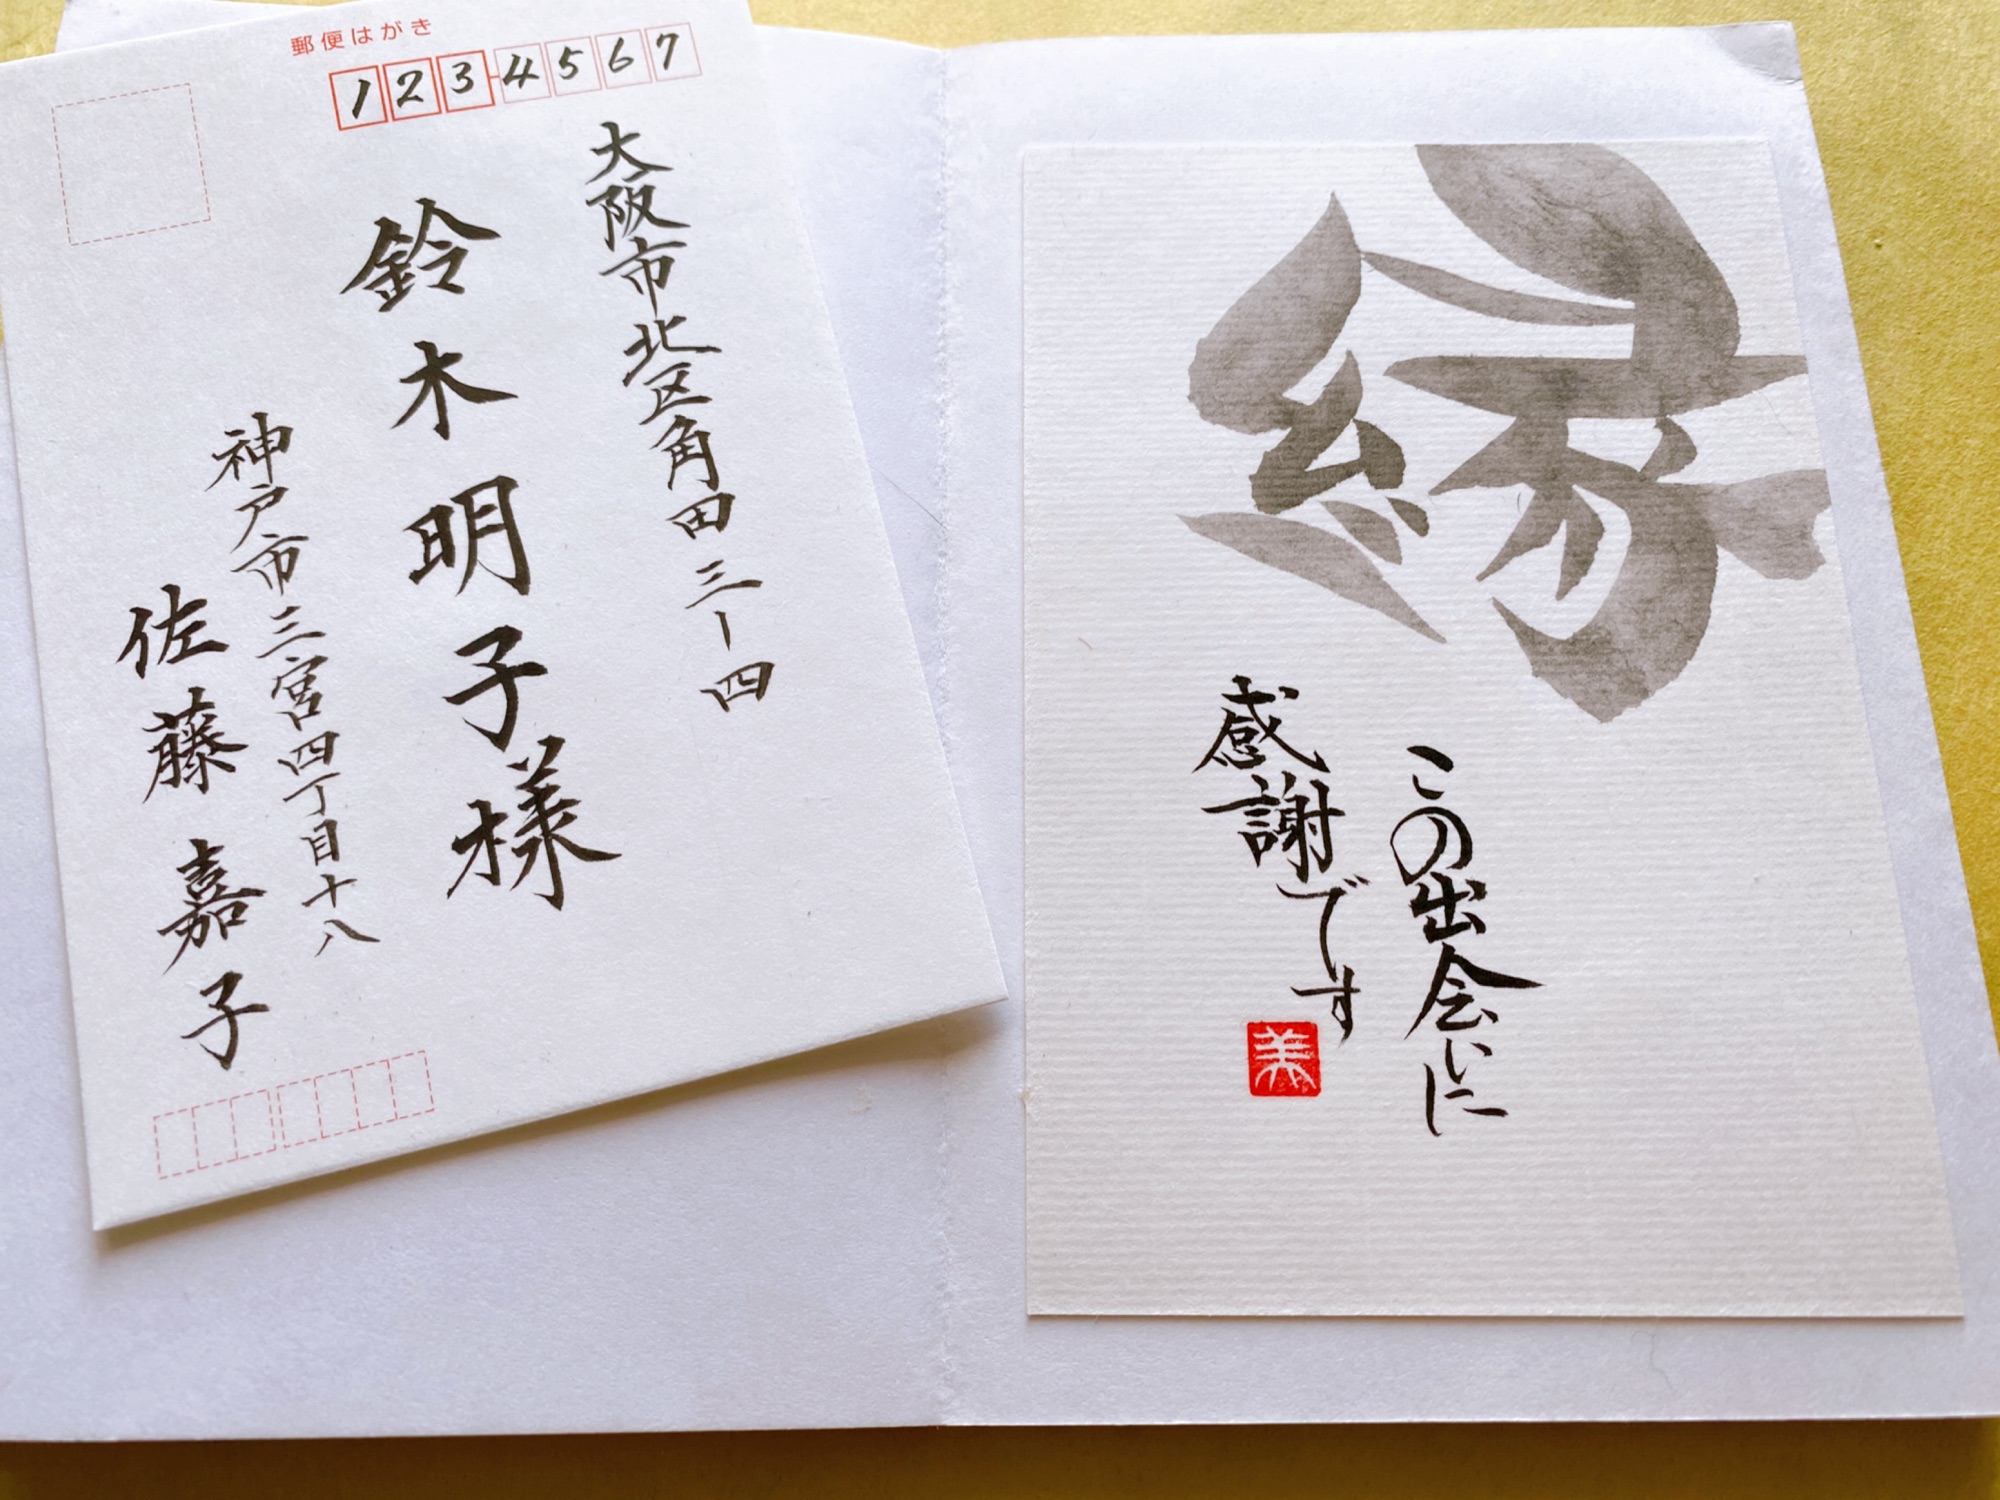 郵便はがき
123-4567
大阪市北区角田三ー四
鈴木明子様
神戸市三宮四丁目十八
佐藤嘉子
縁
この出会いに
感謝です
美